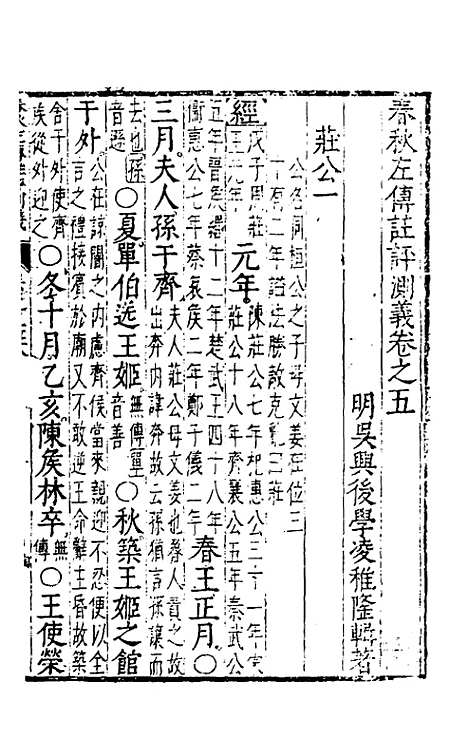 春秋左傳註評測義卷之五
明吳興後學凌稚隆輯著
莊公一
公名同桓公之子母文姜在位三
十有二年諡法勝敵克亂曰莊
經
戊子周莊
王元年
元年
陳莊公七年杞惠公三十一年宋
莊公十八年齊襄公五年秦武公
五年晉侯緡十二年楚武王四十八年
衛惠公七年蔡哀侯二年鄭子儀二年
春王正月○
三月夫人孫于齊
夫人莊公母文姜也魯人責之故
出奔內諱奔故云孫猶言孫讓而
去也孫
音遜
○夏單伯送王姬
無傳單
音善
○秋築王姬之館
于外
公在諒闇之內慮齊侯當來親迎不忍便以全
言之禮接賓於廟又不敢逆王命辭主昏故築
舍于外使齊
侯從外迎之
○冬十月乙亥陳侯林卒
無
傳
○王使榮